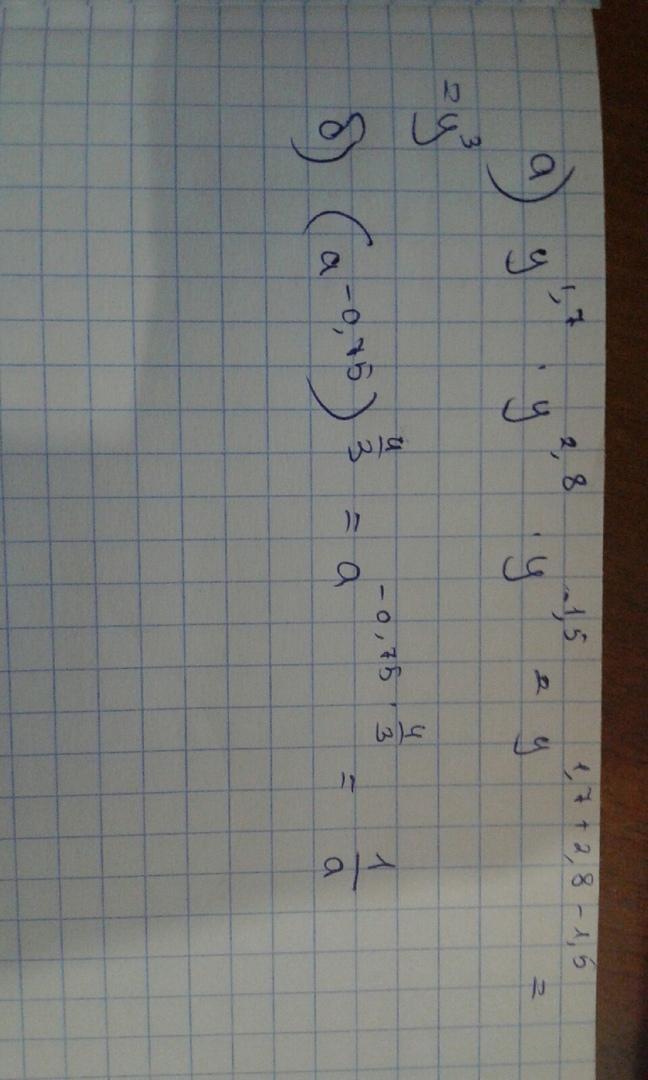 а) y^1,7 · y^2,8 · y^-1,5 = y^1,7+2,8-1,5 =
= y^3
б) (a^-0,75)^4/3 = a^-0,75 · 4/3 = 1/a